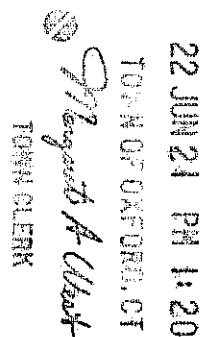 22 JUN 21 PM 1:20
TOWN OF OXFORD, CT
Margaret A West
TOWN CLERK